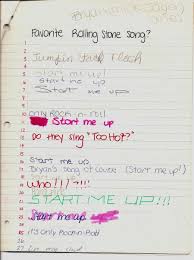 Favorite Rolling Stone Song?
Jumpin Jack Flash
Start me up
Start me up
Start me up
only Rock-n-roll
Start me up
Do they sing "Too Hot??"
Start me up
Bryan's song of course (Start me up)
Who!!??!
START ME UP!!!
Start me up
It's Only Rock-n-Roll